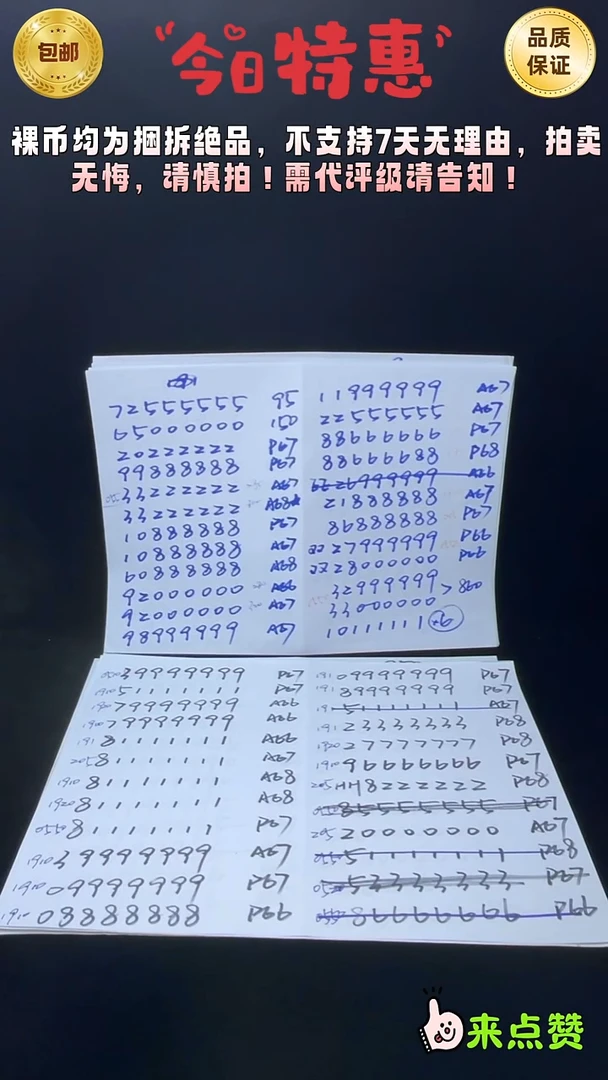 包邮
今日特惠
品质
保证
裸币均为捆拆绝品，不支持7天无理由，拍卖
无悔，请慎拍！需代评级请告知！
72555555 95
65000000 150
20222222 P67
99888888 P67
33222222 A67
33222222 A68
10888888 P67
10888888 A67
60888888 A68
92000000 A66
92000000 A67
98999999 A67
11999999 A67
22555555 A67
88666666 P67
88666688 P68
999999 A66
21888888 A67
86888888 P67
2227999999 P66
2228000000 P66
32999999 > 860
33000000
10111111 26
39999999 P67
1910 51111111 P67
79999999 A66
1900 79999999 A66
191 81111111 A66
205 81111111 A67
1910 81111111 A68
1920 81111111 A68
0550 81111111 P67
1910 39999999 A67
1910 09999999 P67
1910 08888888 P66
1910 09999999 P67
191 89999999 P67
51111111 A67
191 23333333 P68
1920 27777777 P68
1910 96666666 P67
205 HH8222222 P68
85555555 P67
205 20000000 A67
51111111 P68
53333333 P67
86666666 P66
来点赞